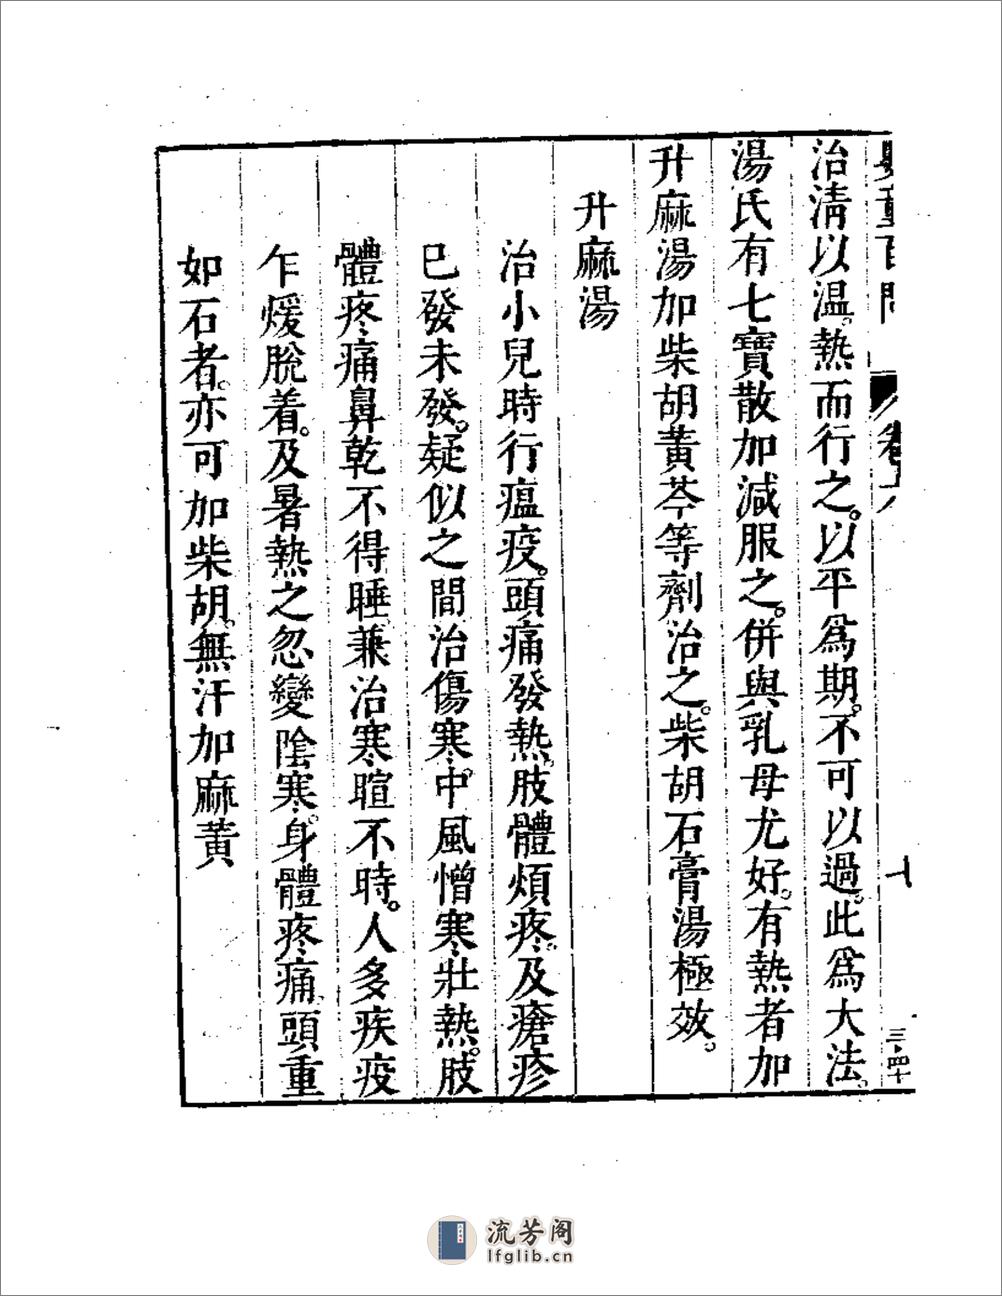 嬰童百問 卷六 十 三·四十
治清以温。熱而行之。以平爲期。不可以過。此爲大法。
湯氏有七寶散加減服之。併與乳母尤好。有熱者加
升麻湯加柴胡黃芩等劑治之。柴胡石膏湯極效。
升麻湯
治小兒時行瘟疫。頭痛發熱。肢體煩疼。及瘡疹
已發未發。疑似之間治傷寒。中風憎寒壯熱。肢
體疼痛鼻乾不得睡兼治寒暄不時。人多疾疫
乍煖脫着。及暑熱之忽變陰寒。身體疼痛頭重
如石者。亦可加柴胡。無汗加麻黃
流芳阁
lfglib.cn